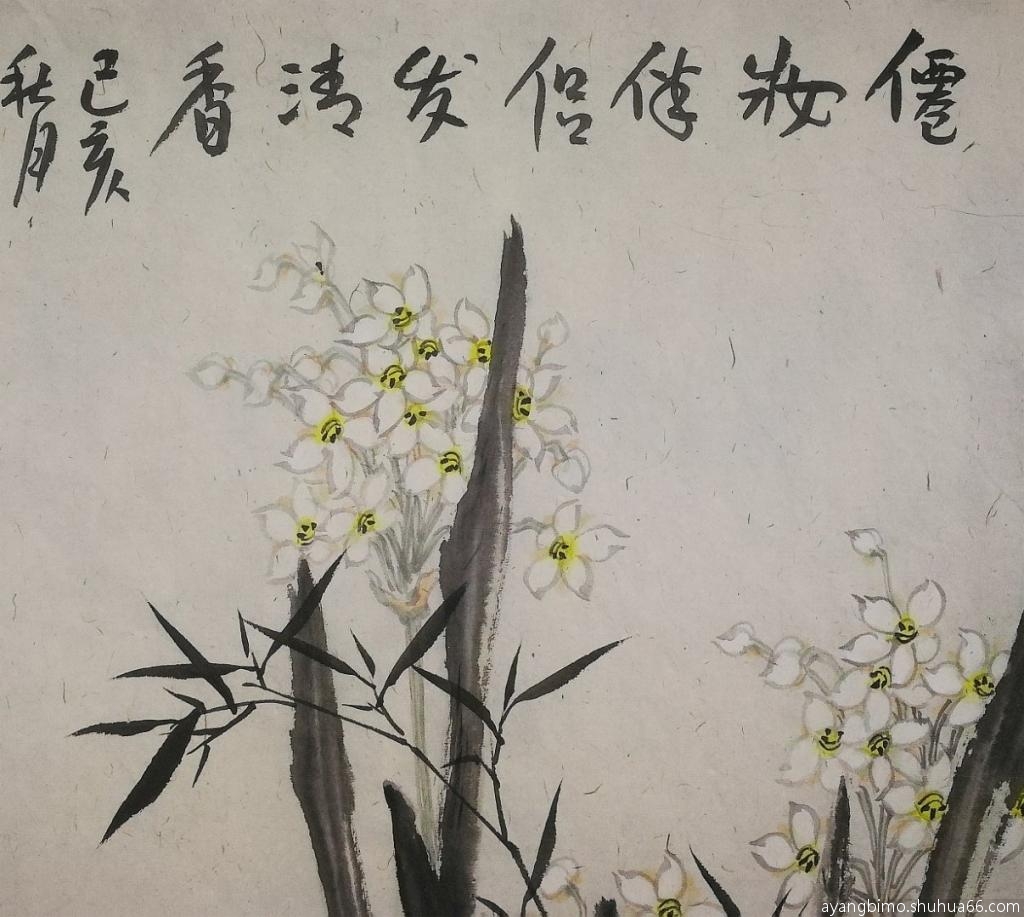 僊妝伴侣发清香
己亥
秋月
ayangbimo.shuhua66.com